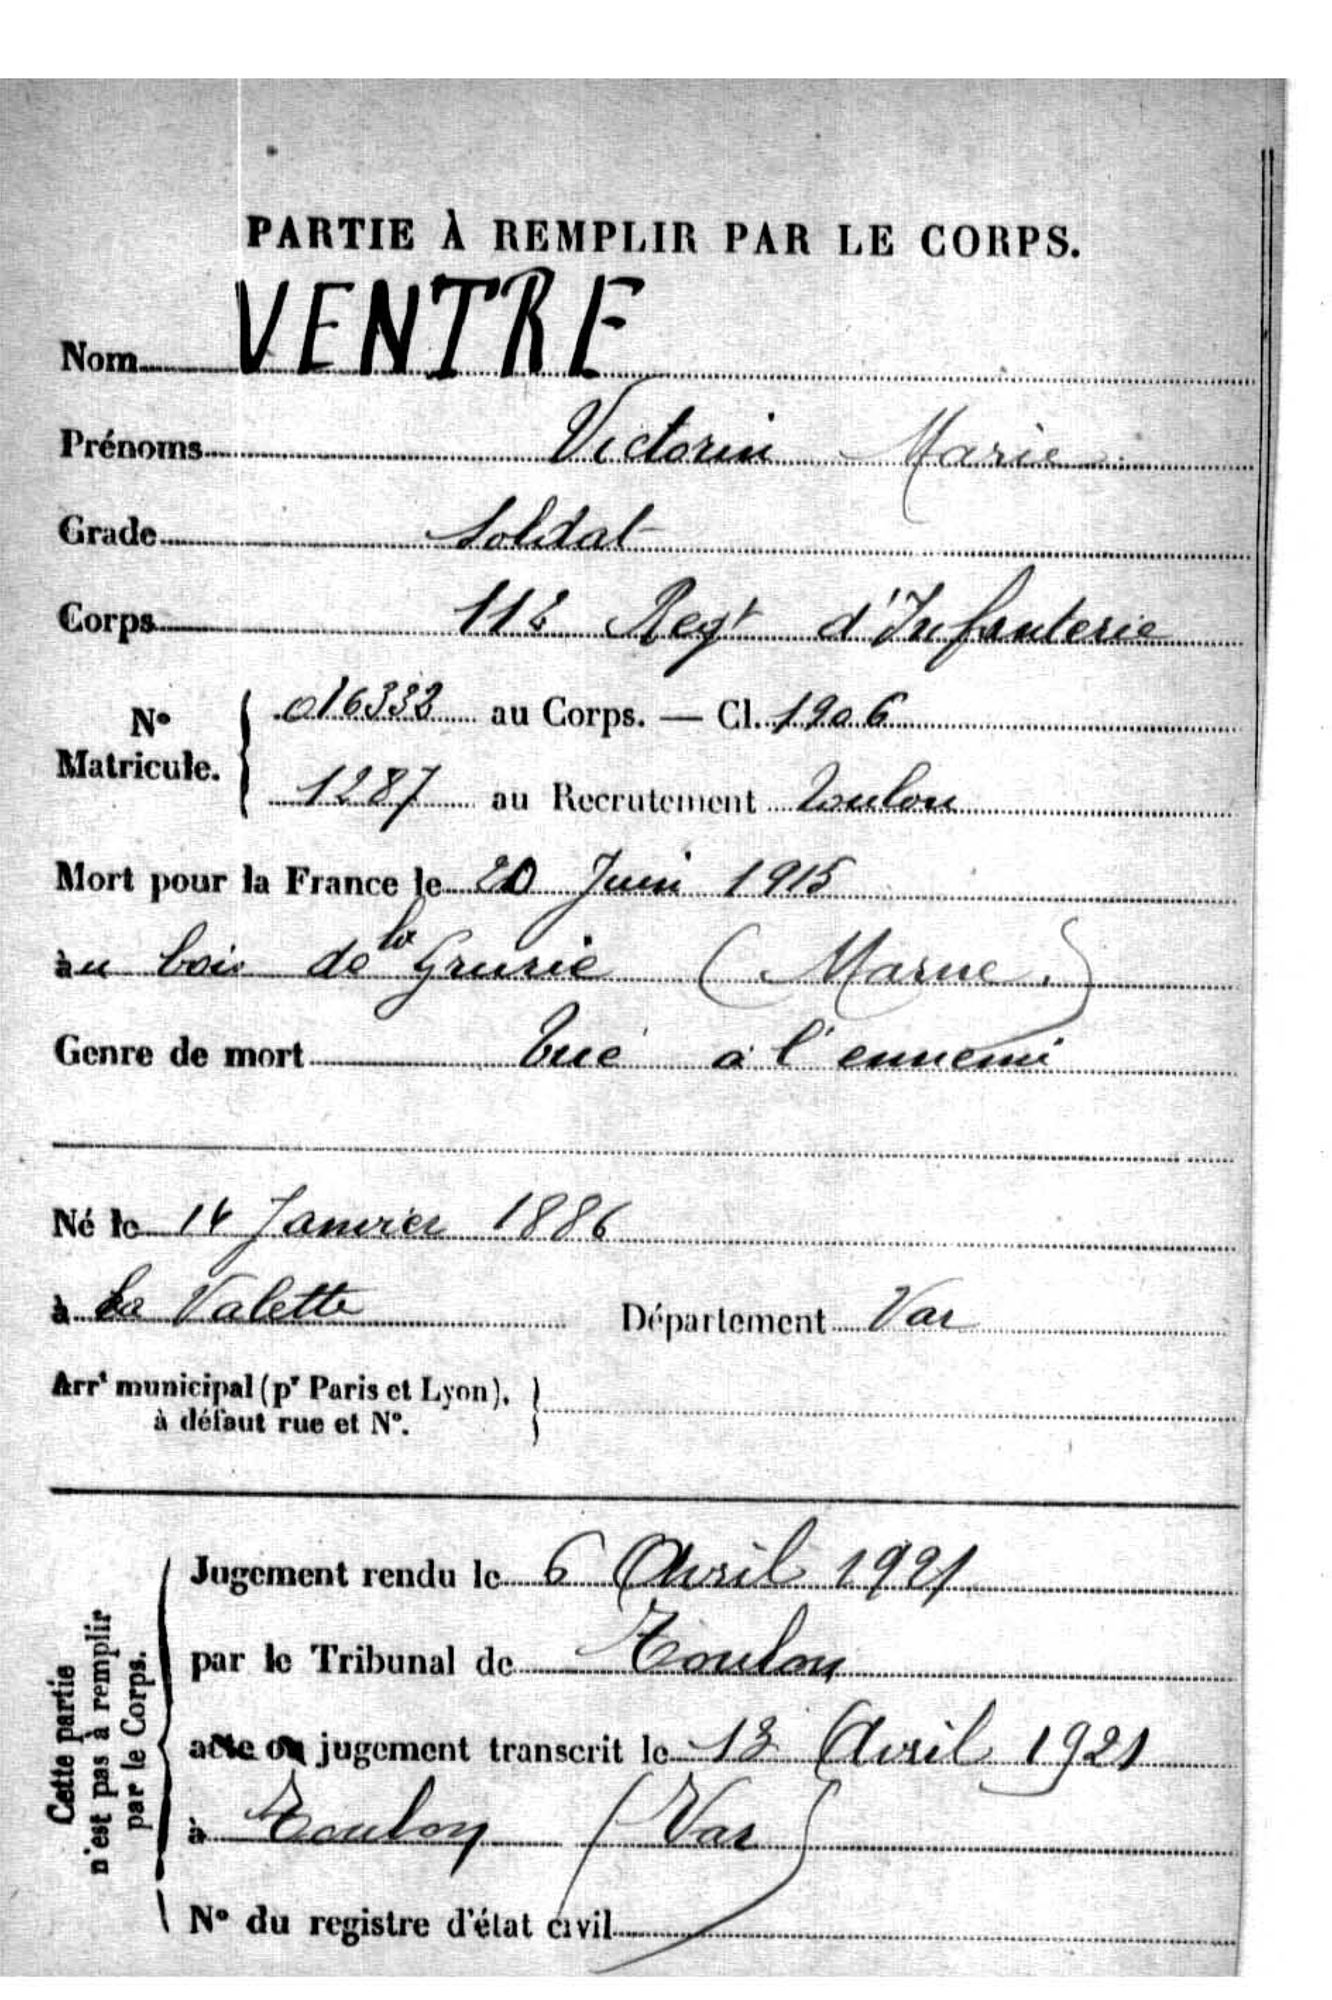 PARTIE À REMPLIR PAR LE CORPS.
Nom VENTRE
Prénoms Victorin Marie
Grade Soldat
Corps Regt d'Infanterie
N° Matricule. 016332 au Corps. — Cl. 1906
1287 au Recrutement Toulon
Mort pour la France le 20 Juin 1915
au bois de la Grurie (Marne.)
Genre de mort tué à l'ennemi
Né le 14 Janvier 1886
à La Valette Département Var
Arrt municipal (pr Paris et Lyon),
à défaut rue et N°.
Jugement rendu le 6 Avril 1921
par le Tribunal de Toulon
acte ou jugement transcrit le 13 Avril 1921
à Toulon (Var)
N° du registre d'état civil
Cette partie
n'est pas à remplir
par le Corps.